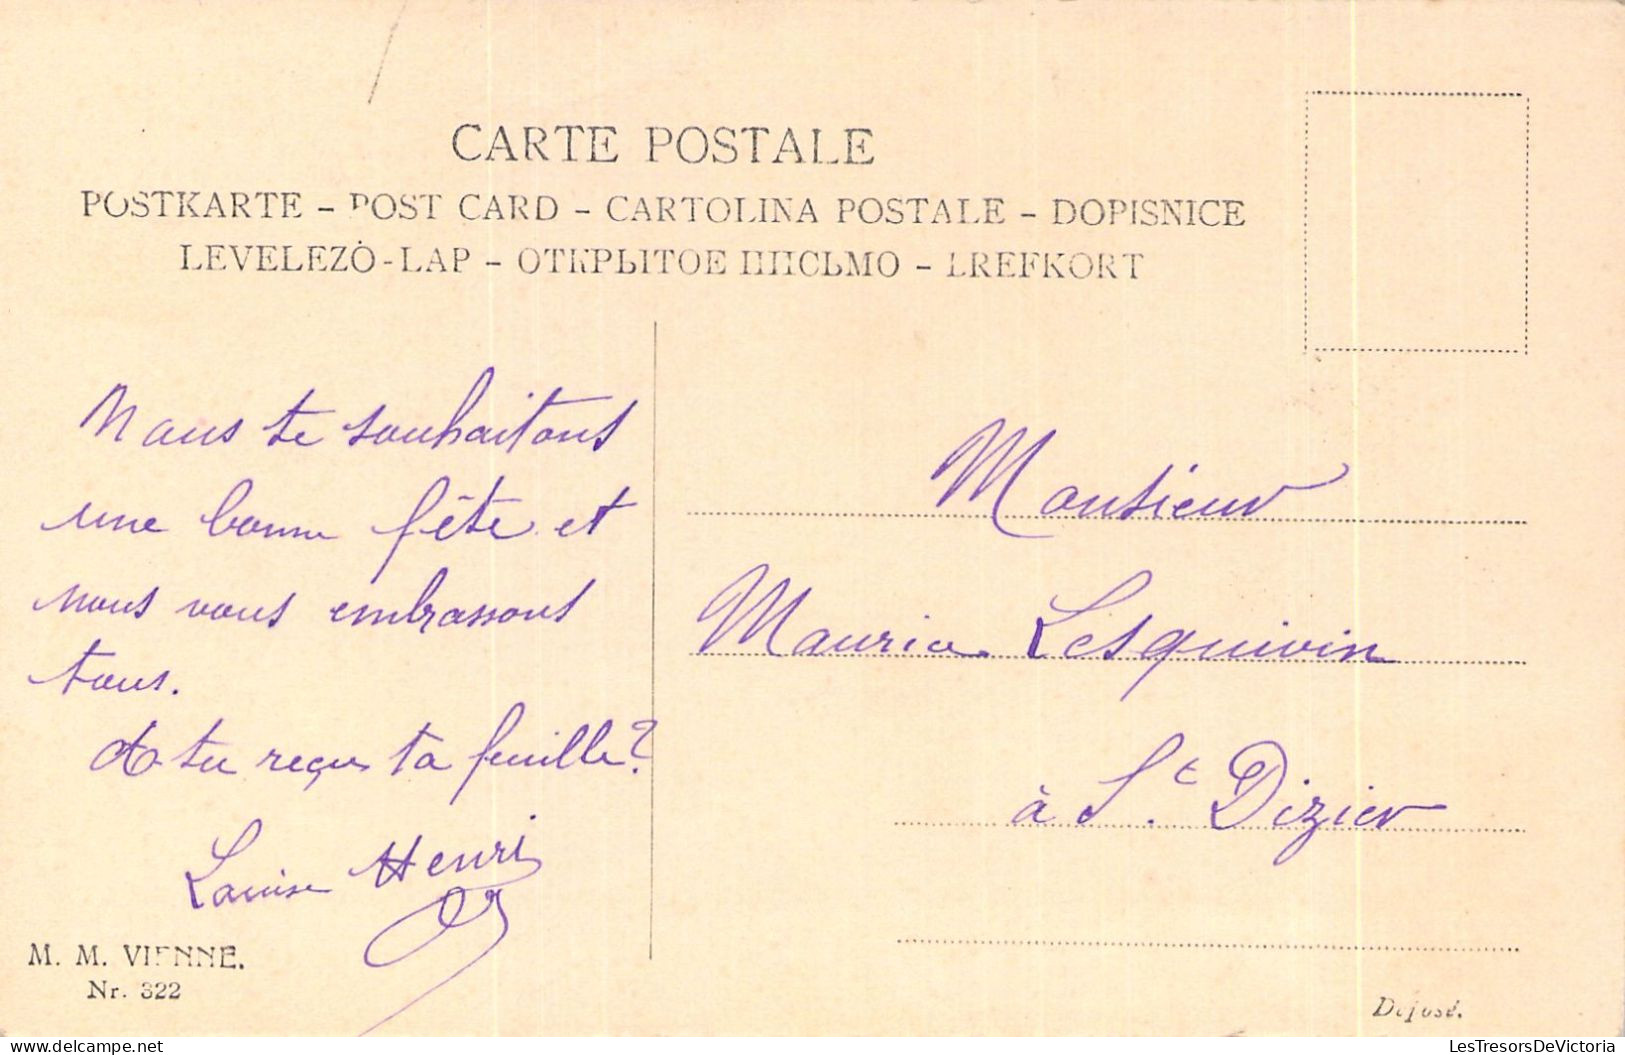 CARTE POSTALE
POSTKARTE – POST CARD – CARTOLINA POSTALE – DOPISNICE
LEVELEZÒ-LAP – ОТКРЫТОЕ ПИСЬМО – BREFKORT
Nous te souhaitons
une bonne fête et
nous vous embrassons
tous.
As tu reçu ta feuille?
Louise Henri
M. M. VIENNE.
Nr. 322
Monsieur
Maurice Lesquivin
à St. Dizier
Deposé.
LesTresorsDeVictoria
LesTresorsDeVictoria.com